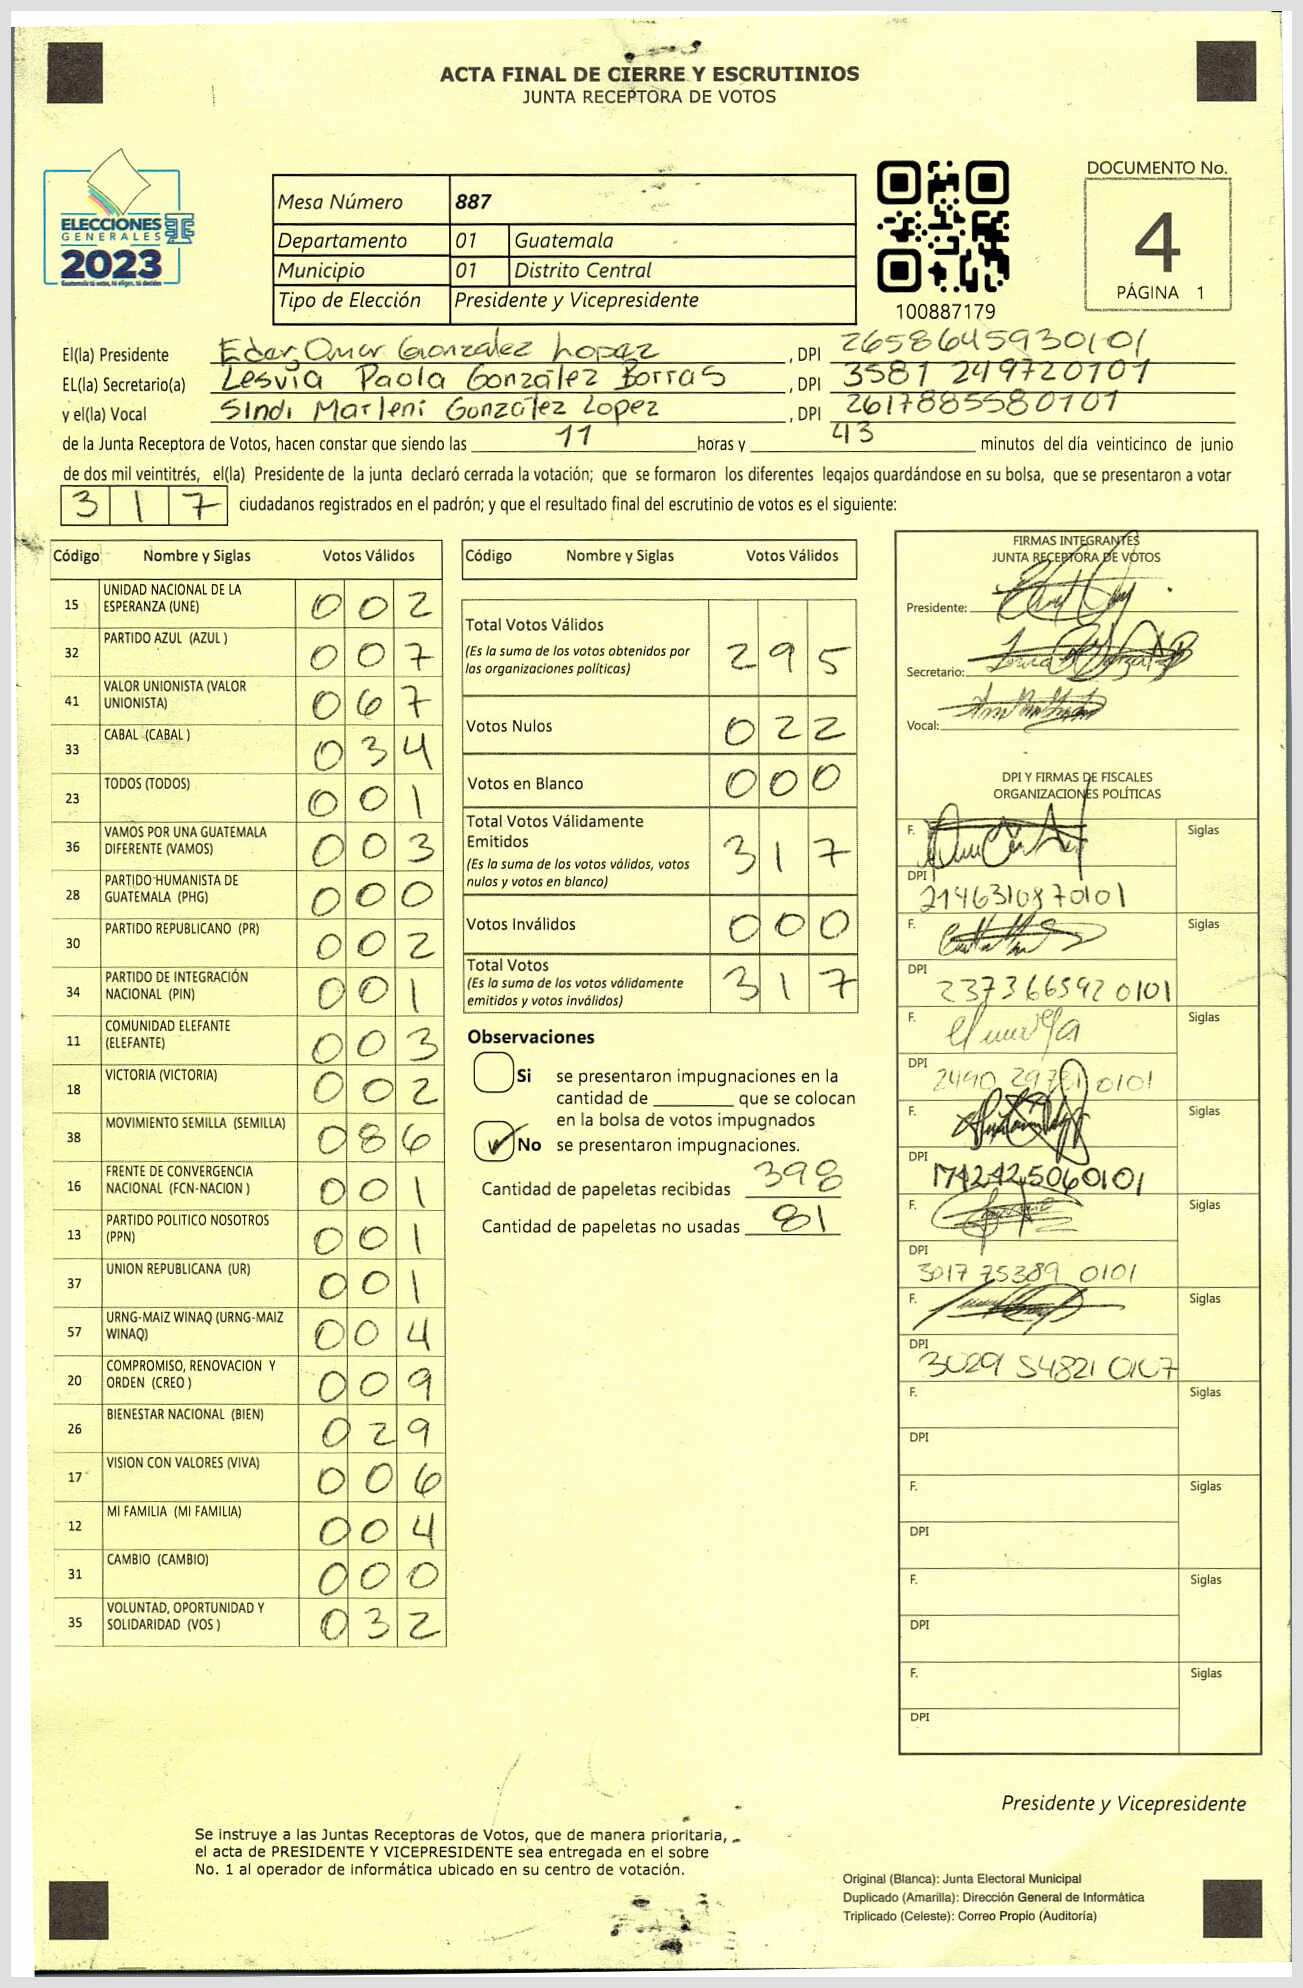 ACTA FINAL DE CIERRE Y ESCRUTINIOS
JUNTA RECEPTORA DE VOTOS
ELECCIONES
GENERALES
2023
Guatemala tú votas, tú eliges, tú decides
Mesa Número 887
Departamento 01 Guatemala
Municipio 01 Distrito Central
Tipo de Elección Presidente y Vicepresidente
100887179
DOCUMENTO No.
4
PÁGINA 1
El(la) Presidente Eder Omar González Lopez , DPI 2658645930101
EL(la) Secretario(a) Lesvia Paola González Borras , DPI 3581 249720101
y el(la) Vocal Sindi Marleni González Lopez , DPI 2617885580101
de la Junta Receptora de Votos, hacen constar que siendo las 11 horas y 43 minutos del día veinticinco de junio
de dos mil veintitrés, el(la) Presidente de la junta declaró cerrada la votación; que se formaron los diferentes legajos guardándose en su bolsa, que se presentaron a votar
317 ciudadanos registrados en el padrón; y que el resultado final del escrutinio de votos es el siguiente:
Código Nombre y Siglas Votos Válidos
15 UNIDAD NACIONAL DE LA ESPERANZA (UNE) 002
32 PARTIDO AZUL (AZUL ) 007
41 VALOR UNIONISTA (VALOR UNIONISTA) 067
33 CABAL (CABAL ) 034
23 TODOS (TODOS) 001
36 VAMOS POR UNA GUATEMALA DIFERENTE (VAMOS) 003
28 PARTIDO HUMANISTA DE GUATEMALA (PHG) 000
30 PARTIDO REPUBLICANO (PR) 002
34 PARTIDO DE INTEGRACIÓN NACIONAL (PIN) 001
11 COMUNIDAD ELEFANTE (ELEFANTE) 003
18 VICTORIA (VICTORIA) 002
38 MOVIMIENTO SEMILLA (SEMILLA) 086
16 FRENTE DE CONVERGENCIA NACIONAL (FCN-NACION ) 001
13 PARTIDO POLITICO NOSOTROS (PPN) 001
37 UNION REPUBLICANA (UR) 001
57 URNG-MAIZ WINAQ (URNG-MAIZ WINAQ) 004
20 COMPROMISO, RENOVACION Y ORDEN (CREO ) 009
26 BIENESTAR NACIONAL (BIEN) 029
17 VISION CON VALORES (VIVA) 006
12 MI FAMILIA (MI FAMILIA) 004
31 CAMBIO (CAMBIO) 000
35 VOLUNTAD, OPORTUNIDAD Y SOLIDARIDAD (VOS ) 032
Código Nombre y Siglas Votos Válidos
Total Votos Válidos 295
(Es la suma de los votos obtenidos por
las organizaciones políticas)
Votos Nulos 022
Votos en Blanco 000
Total Votos Válidamente
Emitidos 317
(Es la suma de los votos válidos, votos
nulos y votos en blanco)
Votos Inválidos 000
Total Votos 317
(Es la suma de los votos válidamente
emitidos y votos inválidos)
Observaciones
Si se presentaron impugnaciones en la
cantidad de ________ que se colocan
en la bolsa de votos impugnados
No se presentaron impugnaciones.
Cantidad de papeletas recibidas 398
Cantidad de papeletas no usadas 81
FIRMAS INTEGRANTES
JUNTA RECEPTORA DE VOTOS
Presidente:
Secretario:
Vocal:
DPI Y FIRMAS DE FISCALES
ORGANIZACIONES POLÍTICAS
F. Siglas
DPI 2146310870101
F. Siglas
DPI 2373665920101
F. Siglas
DPI 2490 29781 0101
F. Siglas
DPI 1742425060101
F. Siglas
DPI 3017 75389 0101
F. Siglas
DPI 3029 54821 0107
F. Siglas
DPI
F. Siglas
DPI
F. Siglas
DPI
F. Siglas
DPI
Presidente y Vicepresidente
Se instruye a las Juntas Receptoras de Votos, que de manera prioritaria,
el acta de PRESIDENTE Y VICEPRESIDENTE sea entregada en el sobre
No. 1 al operador de informática ubicado en su centro de votación.
Original (Blanca): Junta Electoral Municipal
Duplicado (Amarilla): Dirección General de Informática
Triplicado (Celeste): Correo Propio (Auditoría)